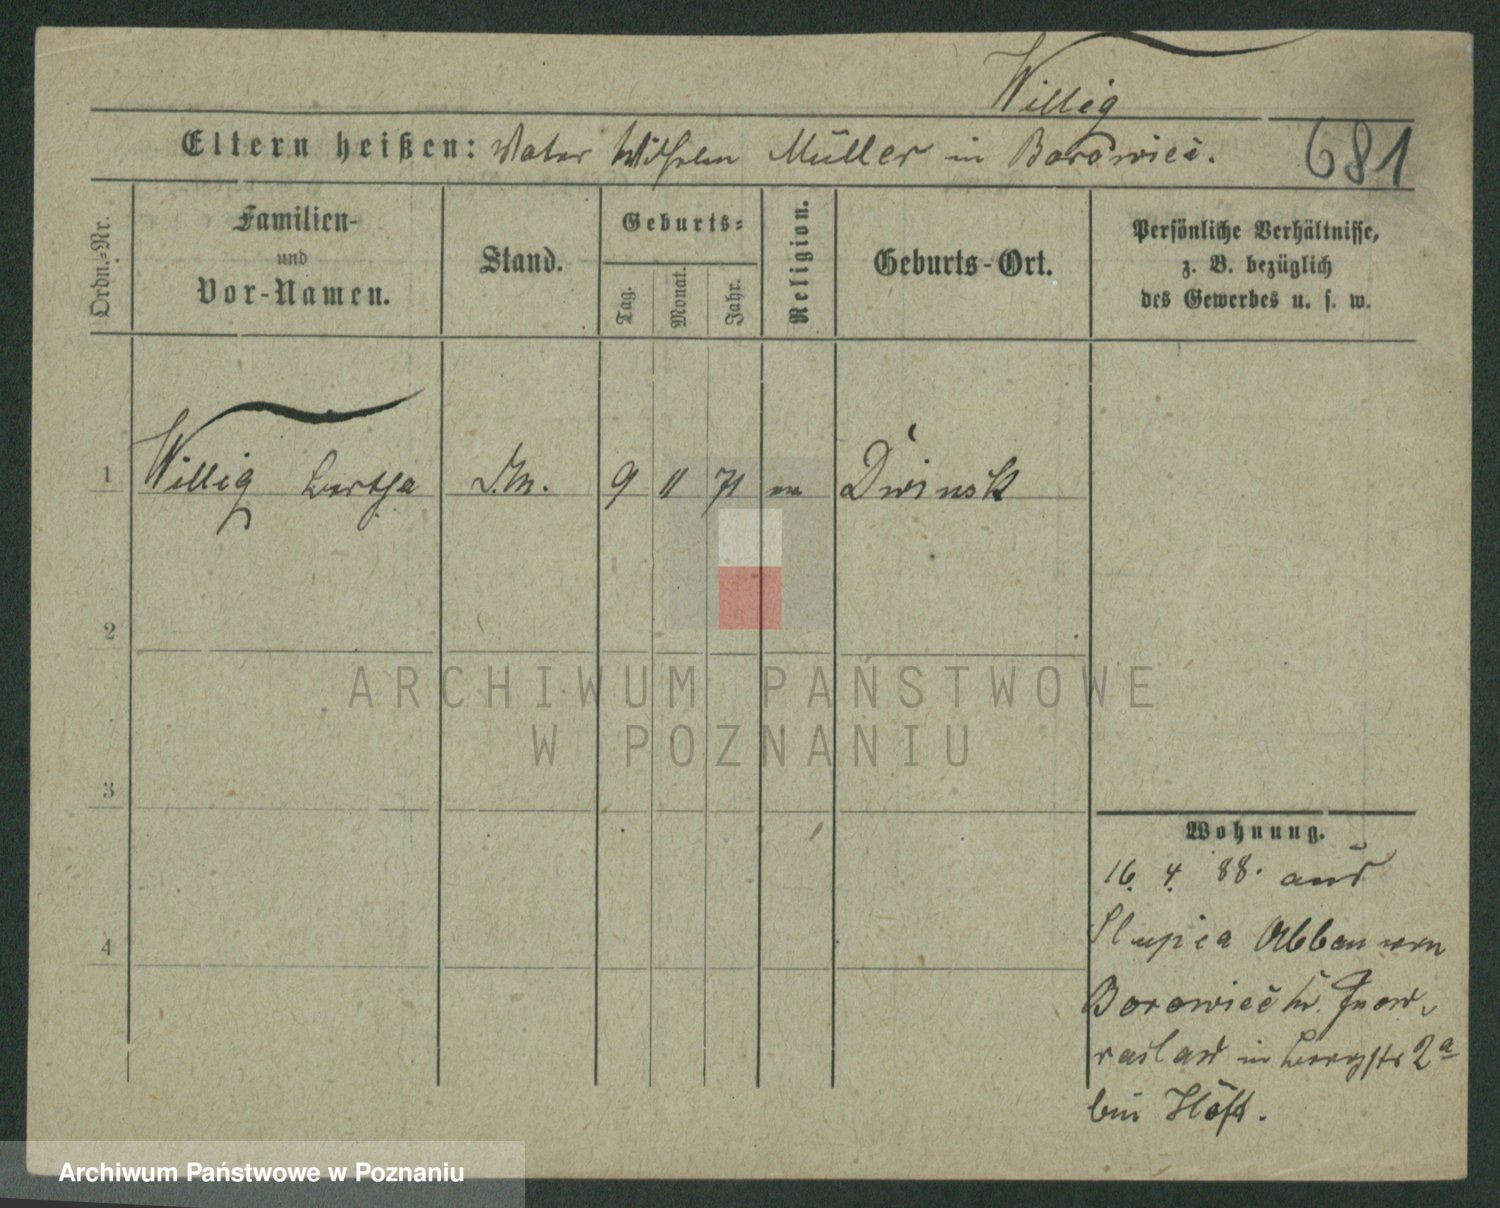 Willig
681
Eltern heißen: Vater Wilhelm Müller in Borowiec.
Ordn.=Nr.
Familien-
und
Vor-Namen.
Stand.
Geburts=
Tag.
Monat.
Jahr.
Religion.
Geburts-Ort.
Persönliche Verhältnisse,
z. B. bezüglich
des Gewerbes u. s. w.
1 Willig Bertha 9 11 71 Dwinsk
2
ARCHIWUM PAŃSTWOWE
W POZNANIU
3
Wohnung.
16. 4. 88. aus
Slupiea Abbau von
4
Borowiec Kr. Inow-
razlaw in Bergstr 2a
bei Höft.
Archiwum Państwowe w Poznaniu